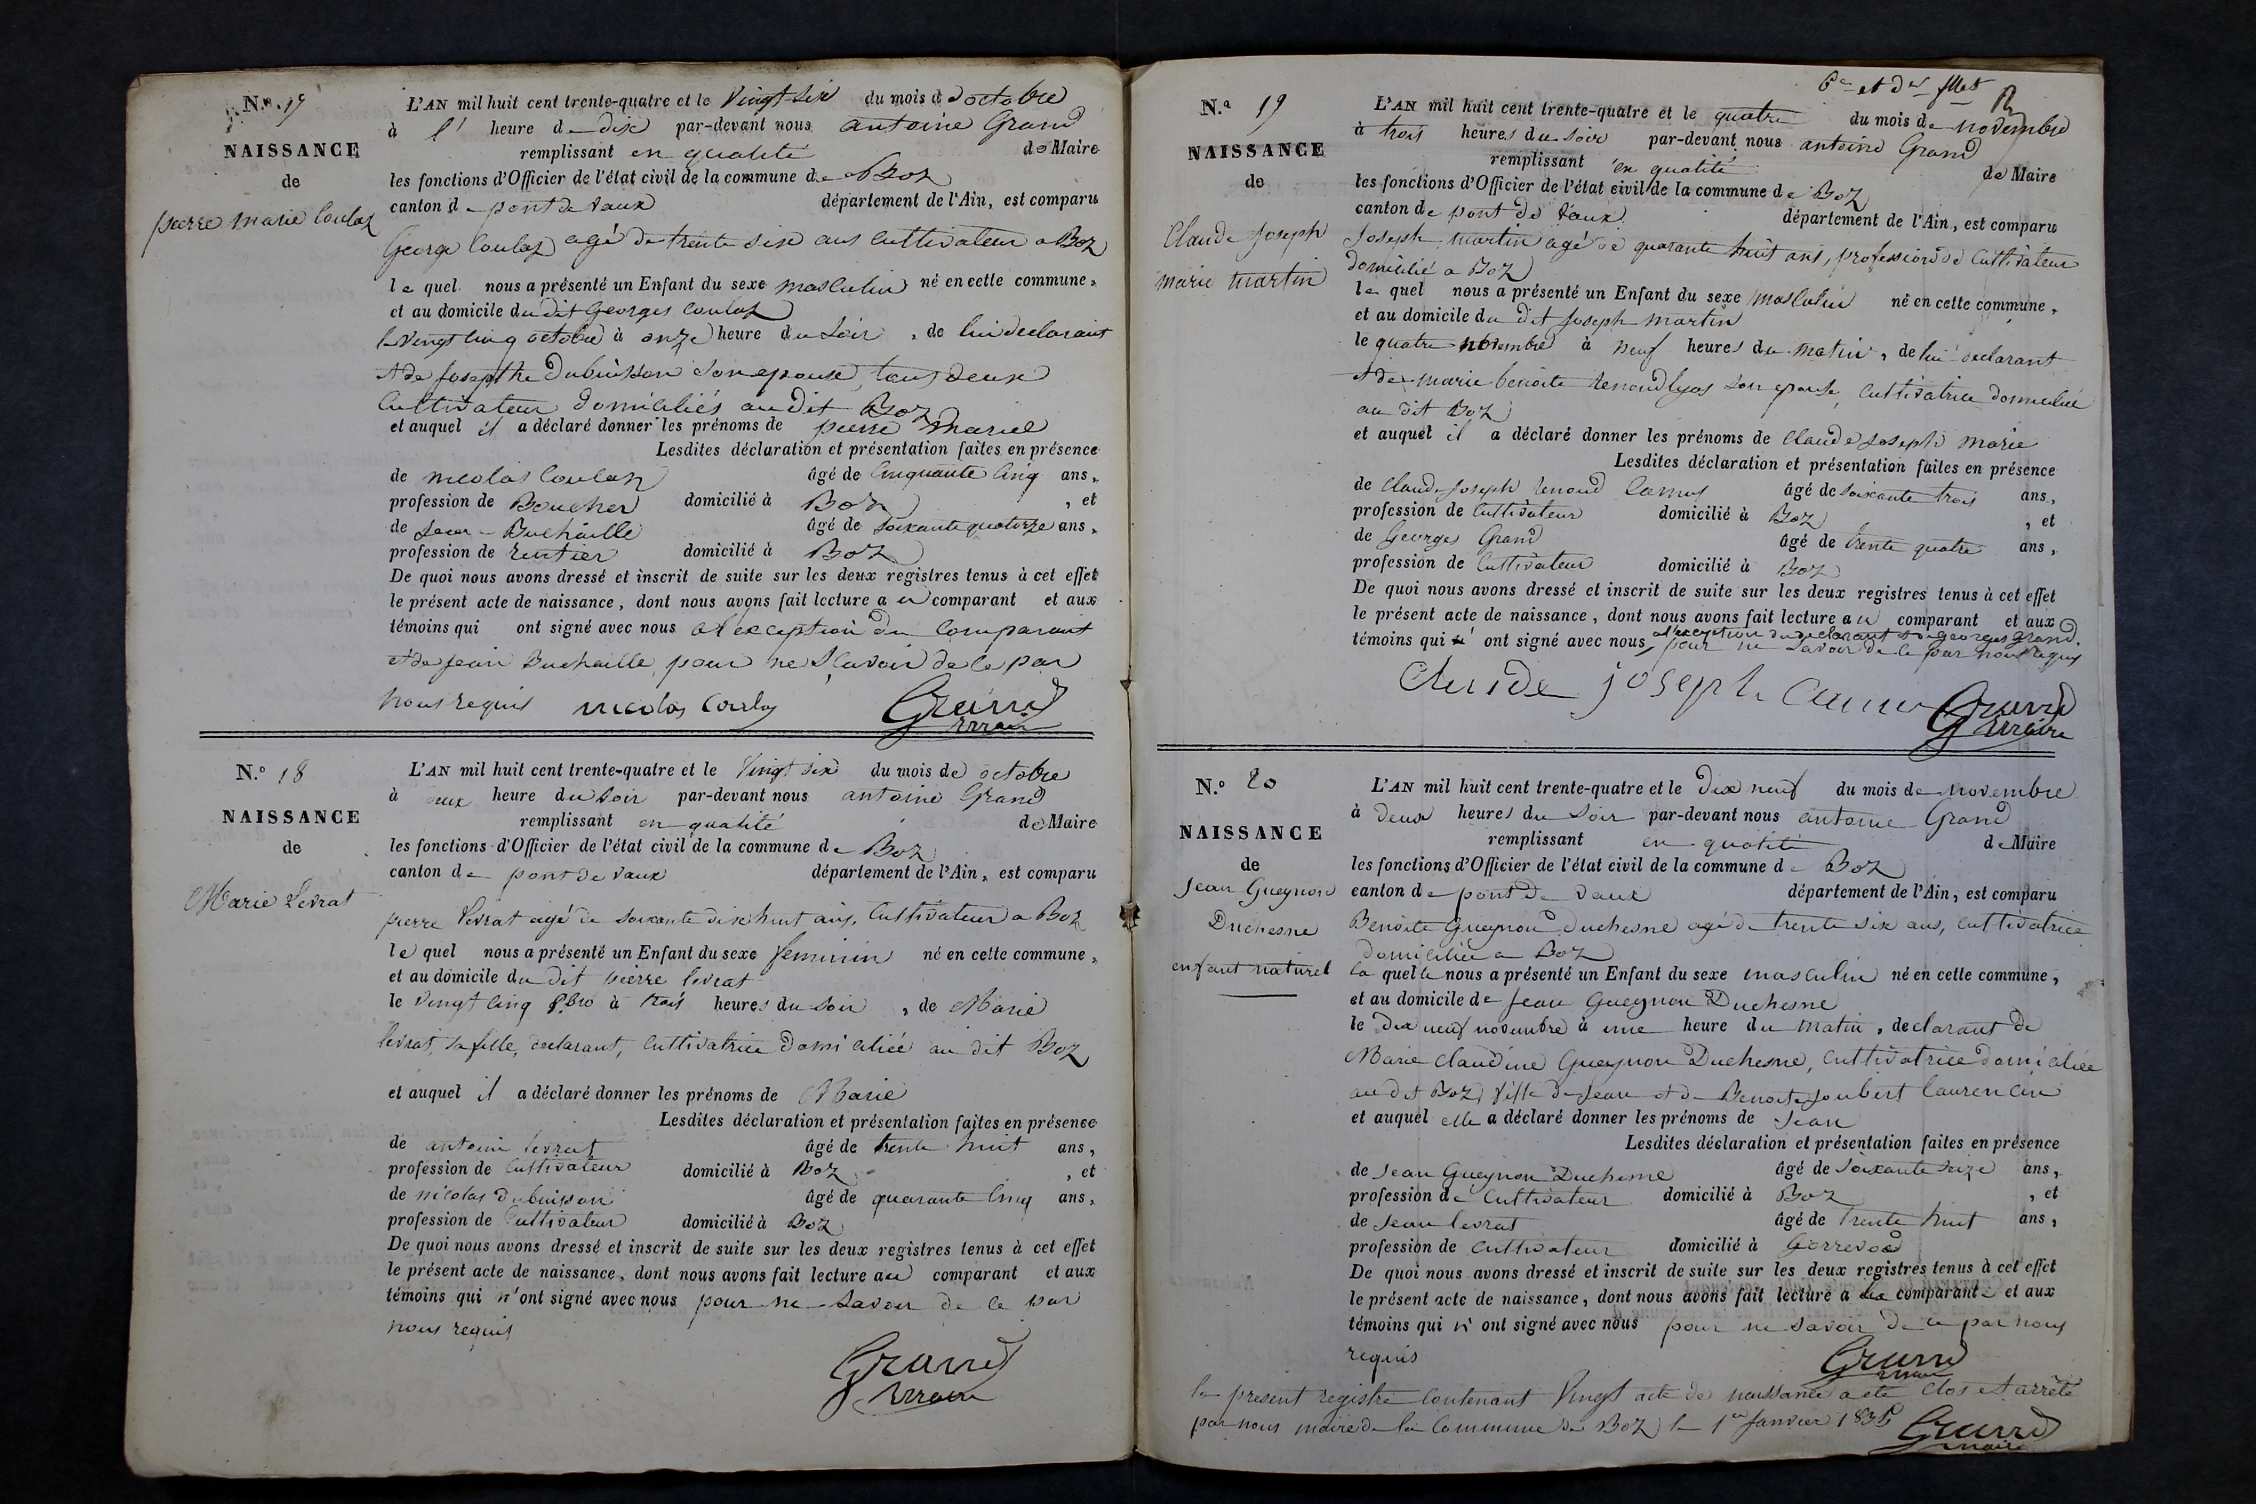 N.o 17
NAISSANCE
de
pierre marie Coulas
L'AN mil huit cent trente-quatre et le Vingt Six du mois d'octobre
à l' heure de dix par-devant nous antoine Grand
remplissant en qualité de Maire
les fonctions d'Officier de l'état civil de la commune de Boz
canton de pont de vaux département de l'Ain, est comparu
George Coulas agé de trente six ans cultivateur a Boz
le quel nous a présenté un Enfant du sexe masculin né en cette commune,
et au domicile du dit Georges Coulas
le vingt cinq octobre à onze heure du Soir , de lui declarant
et de Josepthe Dubuisson son epouse, tous deux
Cultivateur domiciliés au dit Boz
et auquel il a déclaré donner les prénoms de pierre Marie
Lesdites déclaration et présentation faites en présence
de nicolas Coulas âgé de Cinquante Cinq ans,
profession de Boucher domicilié à Boz , et
de Jean Buchaille âgé de soixante quatorze ans,
profession de rentier domicilié à Boz
De quoi nous avons dressé et inscrit de suite sur les deux registres tenus à cet effet
le présent acte de naissance, dont nous avons fait lecture au comparant et aux
témoins qui ont signé avec nous a l'exception du comparant
et de Jean Buchaille, pour ne Sçavoir de ce par
nous requis nicolas Coulas Grand
maire
N.o 18
NAISSANCE
de
Marie Levrat
L'AN mil huit cent trente-quatre et le Vingt six du mois de octobre
à heure du soir par-devant nous antoine Grand
remplissant en qualité de Maire
les fonctions d'Officier de l'état civil de la commune de Boz
canton de pont de vaux département de l'Ain, est comparu
pierre levrat agé de soixante dix huit ans, Cultivateur a Boz
le quel nous a présenté un Enfant du sexe feminin né en cette commune,
et au domicile du dit pierre levrat
le vingt cinq 8bre à trois heures du soir , de Marie
levrat, sa fille, declarant, cultivatrice domiciliée au dit Boz
et auquel il a déclaré donner les prénoms de Marie
Lesdites déclaration et présentation faites en présence
de antoine levrat âgé de trente huit ans,
profession de Cultivateur domicilié à Boz , et
de nicolas dubuisson âgé de quarante cinq ans,
profession de Cultivateur domicilié à Boz
De quoi nous avons dressé et inscrit de suite sur les deux registres tenus à cet effet
le présent acte de naissance, dont nous avons fait lecture au comparant et aux
témoins qui n'ont signé avec nous pour ne Savoir de ce par
nous requis
Grand
maire
6e et der fllet
N.o 19
NAISSANCE
de
Claude Joseph
marie martin
L'AN mil huit cent trente-quatre et le quatre du mois de novembre
à trois heures du soir par-devant nous antoine Grand
remplissant en qualité de Maire
les fonctions d'Officier de l'état civil de la commune de Boz
canton de pont de vaux département de l'Ain, est comparu
Joseph martin agé de quarante huit ans, profession de Cultivateur
domicilié a Boz
le quel nous a présenté un Enfant du sexe masculin né en cette commune,
et au domicile du dit Joseph martin
le quatre novembre à neuf heures du matin, de lui declarant
et de marie benoite son epouse, cultivatrice domiciliée
au dit Boz
et auquel il a déclaré donner les prénoms de Claude Joseph marie
Lesdites déclaration et présentation faites en présence
de Claude Joseph renoud Camus âgé de soixante trois ans,
profession de Cultivateur domicilié à Boz , et
de Georges Grand âgé de trente quatre ans,
profession de Cultivateur domicilié à Boz
De quoi nous avons dressé et inscrit de suite sur les deux registres tenus à cet effet
le présent acte de naissance, dont nous avons fait lecture au comparant et aux
témoins qui ont signé avec nous a l'exception du declarant et de georges grand
pour ne savoir de ce par nous requis
Claude joseph Camus Grand
maire
N.o 20
NAISSANCE
de
Jean Gueynon
Duchesne
enfant naturel
L'AN mil huit cent trente-quatre et le Dix neuf du mois de novembre
à deux heures du soir par-devant nous antoine Grand
remplissant en qualité de Maire
les fonctions d'Officier de l'état civil de la commune de Boz
canton de pont de vaux département de l'Ain, est comparu
Benoite Gueynon Duchesne agé de trente six ans, cultivatrice
domiciliée a Boz
la quelle nous a présenté un Enfant du sexe masculin né en cette commune,
et au domicile de Jean Gueynon Duchesne
le Dix neuf novembre à une heure du matin, declarant de
Marie Claudine Gueynon Duchesne, cultivatrice domiciliée
au dit Boz, fille de Jean et de Benoite Joubert laurencin
et auquel elle a déclaré donner les prénoms de Jean
Lesdites déclaration et présentation faites en présence
de Jean Gueynon Duchesne âgé de soixante seize ans,
profession de Cultivateur domicilié à Boz , et
de Jean levrat âgé de trente huit ans,
profession de Cultivateur domicilié à Gorrevod
De quoi nous avons dressé et inscrit de suite sur les deux registres tenus à cet effet
le présent acte de naissance, dont nous avons fait lecture a la comparante et aux
témoins qui n'ont signé avec nous pour ne savoir de ce par nous
requis
Grand
maire
le present registre contenant Vingt acte de naissance a été clos et arrêté
par nous maire de la Commune de Boz le 1er Janvier 1835 Grand
maire